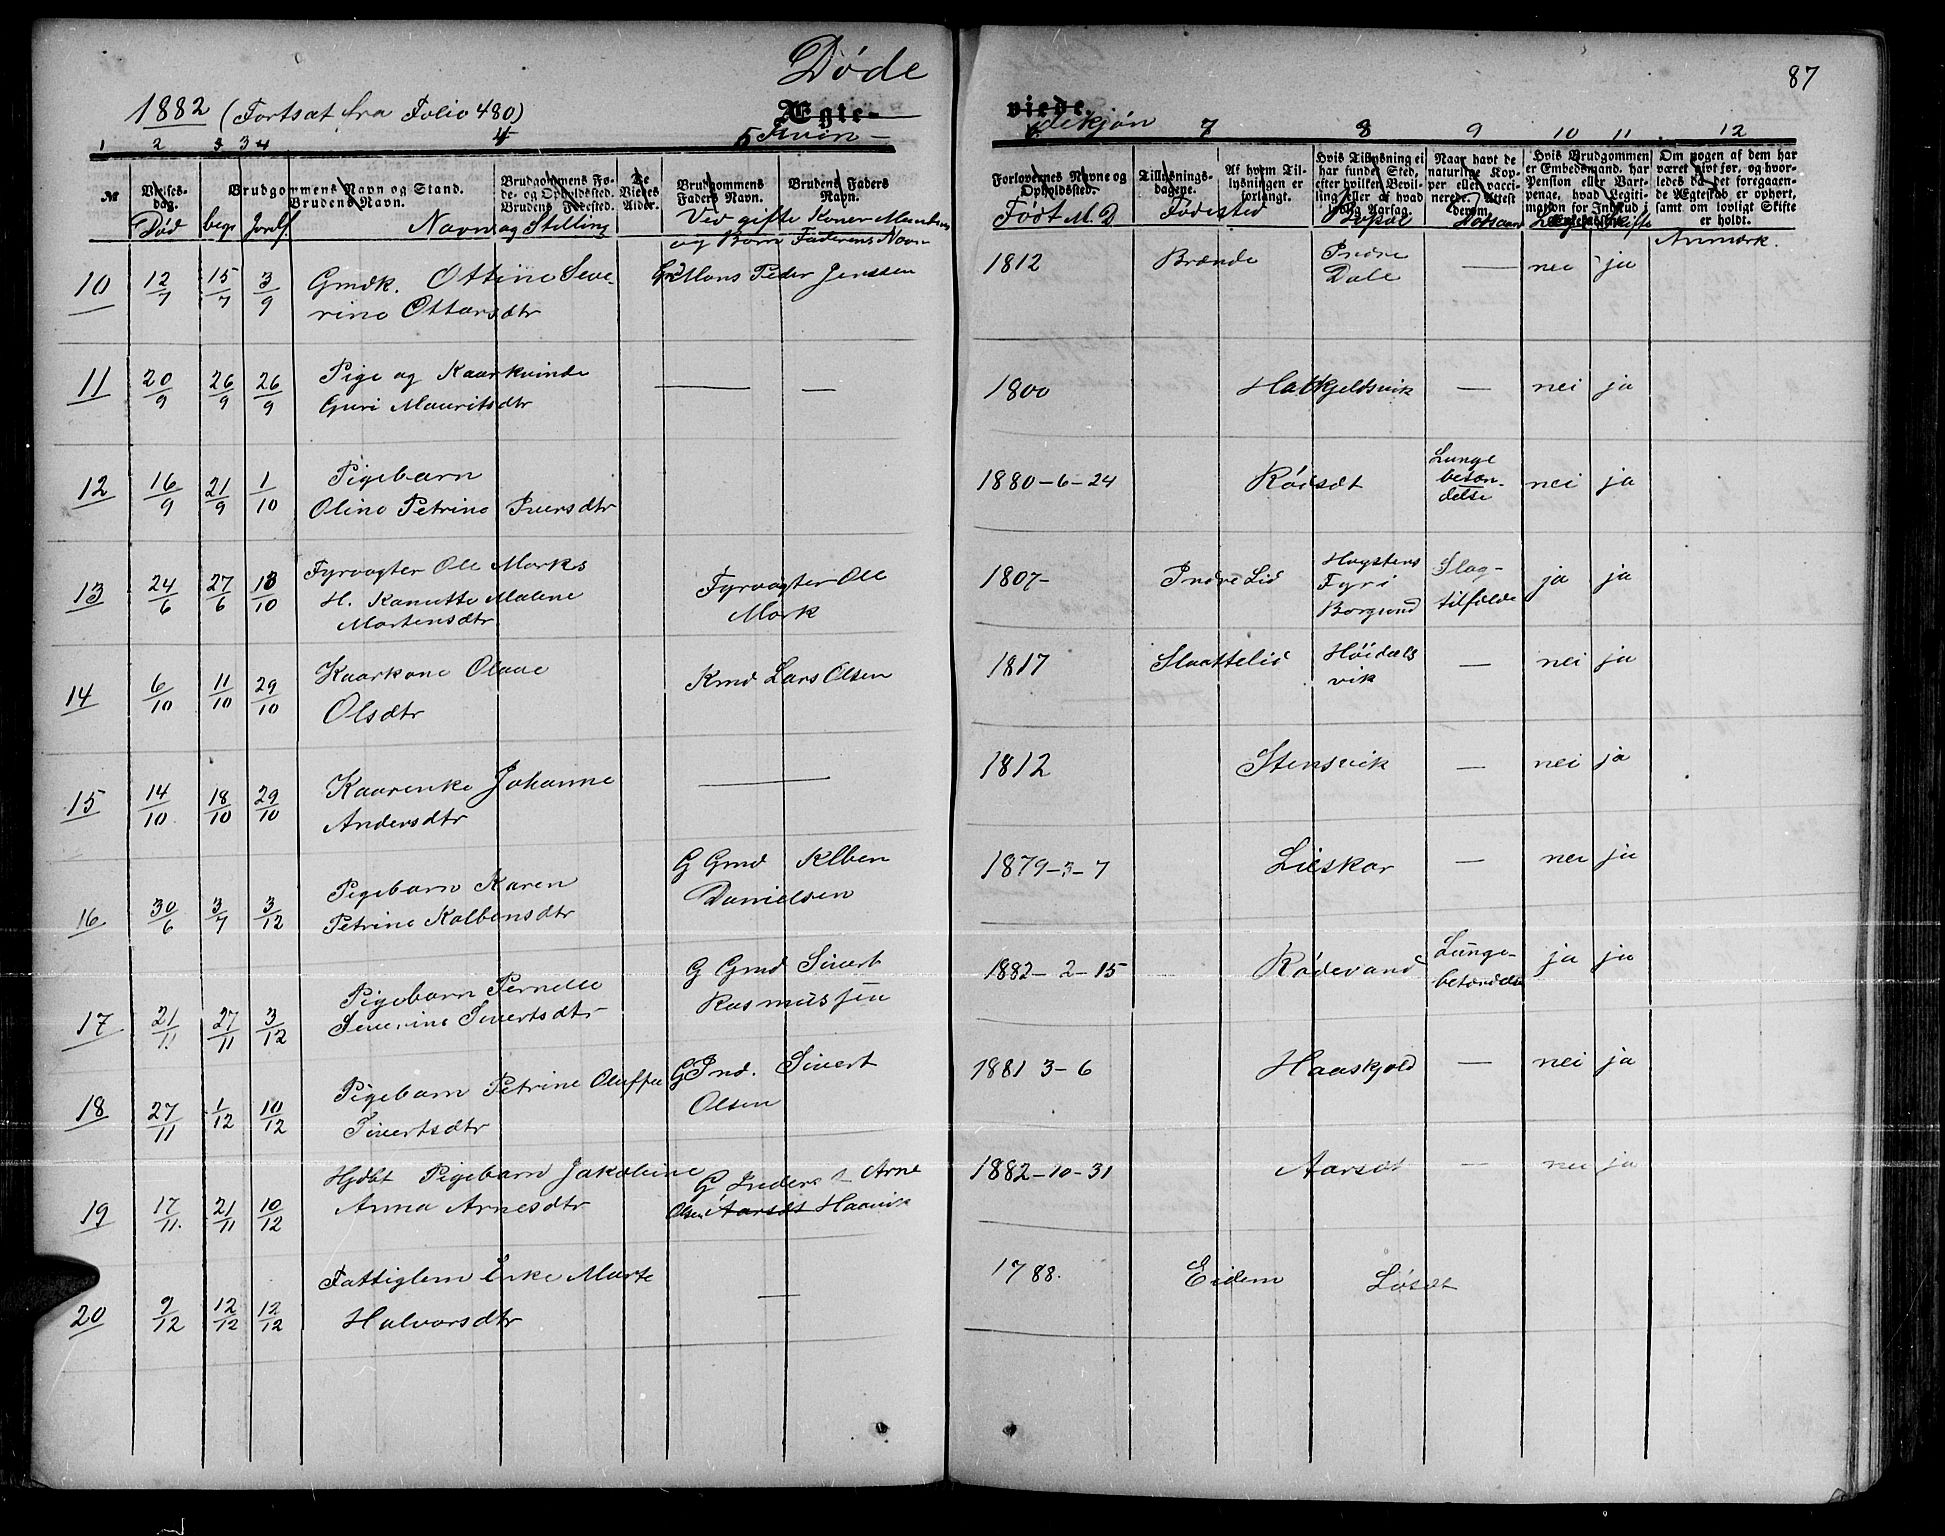 Døde
87
1882 (Fortsat fra Folio 480)
Ægte-
viede.
Kvin-
dekjøn
1 2 3 3 4 4 5
7 8 9 10 11 12
№
Vielses-dag.
Brudgommens Navn og Stand.
Brudens Navn.
Brudgommens Fø-
de- og Opholdssted.
Brudens Fødested.
De Viedes Alder.
Brudgommens Faders Navn.
Brudens Faders Navn.
Forlovernes Navne og Opholdssted.
Tillysnings-dagene.
Af hvem Til-
lysningen er
forlangt.
Hvis Tillysning ei
har fundet Sted,
efter hvilken Bevil-
ling eller af hvad
lovlig Aarsag.
Naar havt de
naturlige Kop-
per eller vacci-
nerede. Attest
derom.
Hvis Brudgommen
er Embedsmand, har
Pension eller Vart-
penge, hvad Legiti-
mation for Indskud i
Om nogen af dem har
været givt før, og hvor-
ledes da det foregaaen-
de Ægteskab er ophørt,
samt om lovligt Skifte
er holdt.
Død begr Jordf Navn og Stilling
Ved gifte Koner Mandens
og Børn Faderens Navn
Født M. D. Fødested Bopæl Dødsaars Læge Skifte
Anmærk.
10 12/7 15/7 3/9 Gmdk. Ottine Seve-
rine Ottarsdtr
Mons Peder Jenssen
1812 Brænde Indre
Dale — nei ja
11 20/9 26/9 26/9 Pige og Kaarkvinde
Guri Mauritsdtr — —
1800 Hatkjeldsvik — nei ja
12 16/9 21/9 1/10 Pigebarn
Oline Petrine Iversdtr
1880-6-24 Rødsæt Lunge
betæn-
delse nei ja
13 24/6 27/6 13/10 Fyrvogter Ole Morks
H. Kanutte Malene
Mortensdtr
Fyrvogter Ole
Mork
1807- Indre Lid Høgstens
Fyr i
Borgund Slag-
tilfælde ja ja
14 6/10 11/10 29/10 Kaarkone Olave
Olsdtr
Kmd Lars Olsen
1817 Slaattelid Høidals
vik — nei ja
15 14/10 18/10 29/10 Kaarenke Johanne
Andersdtr —
1812 Stensvik — nei ja
16 30/6 3/7 3/12 Pigebarn Karen
Petrine Kolbensdtr
G Gmd Klben
Danielsen
1879-3-7 Lieskar — nei ja
17 21/11 27/11 3/12 Pigebarn Pernelle
Severine Sivertsdtr
G Gmd Sivert
Rasmussen
1882-2-15 Rødevand Lunge-
betændelse ja ja
18 27/11 1/12 10/12 Pigebarn Petrine Oluffa
Sivertsdtr
G Ind. Sivert
Olsen
1881 3-6 Haaskjold — nei ja
19 17/11 21/11 10/12 Hjdbt Pigebarn Jakobine
Anna Arnesdtr
G Inders t Arne
Olsen Aarsæt Haavik
1882-10-31 Aarsæt — nei ja
20 9/12 12/12 12/12 Fattiglem Enke Marte
Halvorsdtr —
1788. Eidem Løsæt